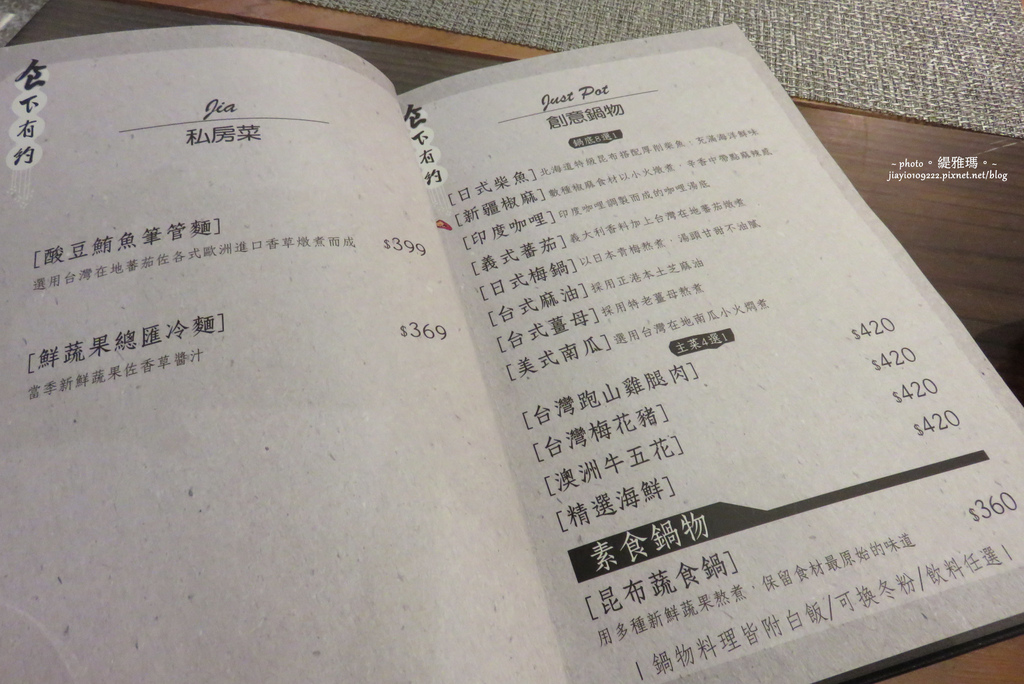 仺下有約
Jia
私房菜
[酸豆鮪魚筆管麵] $399
選用台灣在地蕃茄佐各式歐洲進口香草燉煮而成
[鮮蔬果總匯冷麵] $369
當季新鮮蔬果佐香草醬汁
仺下有約
Just Pot
創意鍋物
鍋底8選1
[日式柴魚] 北海道特級昆布搭配厚削柴魚，充滿海洋鮮味
[新疆椒麻] 數種椒麻食材以小火燉煮，辛香中帶點麻辣感
[印度咖哩] 印度咖哩調製而成的咖哩湯底
[義式蕃茄] 義大利香料加上台灣在地蕃茄燉煮
[日式梅鍋] 以日本青梅熬煮，湯頭甘甜不油膩
[台式麻油] 採用正港本土芝麻油
[台式薑母] 採用特老薑母熬煮
[美式南瓜] 選用台灣在地南瓜小火燜煮
主菜4選1
[台灣跑山雞腿肉] $420
[台灣梅花豬] $420
[澳洲牛五花] $420
[精選海鮮] $420
素食鍋物
[昆布蔬食鍋] $360
用多種新鮮蔬果熬煮，保留食材最原始的味道
| 鍋物料理皆附白飯/可換冬粉/飲料任選 |
~ photo。緹雅瑪。~
jiayio109222.pixnet.net/blog